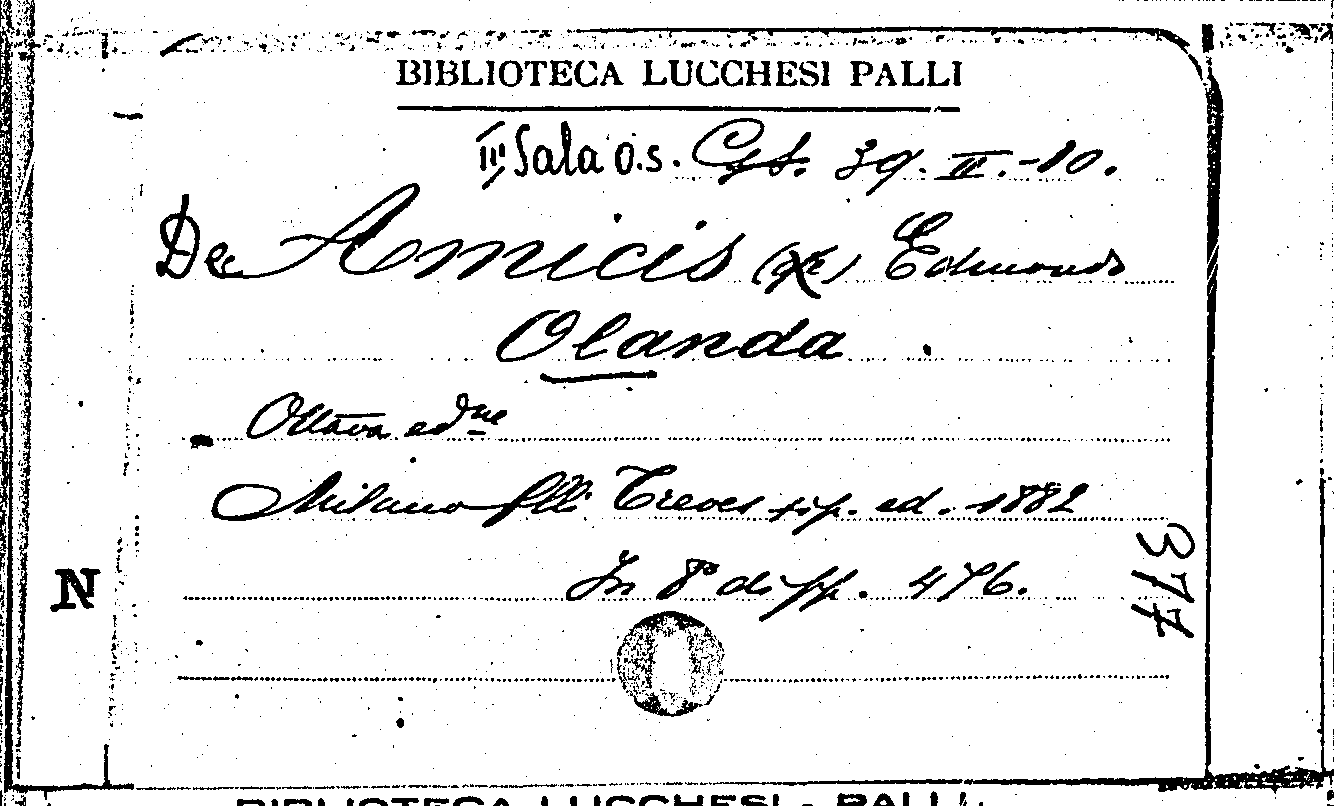 BIBLIOTECA LUCCHESI PALLI
III Sala O.S. Cst. 39. II.-10.
De Amicis (de) Edmondo
Olanda.
Ottava edne
Milano flli Treves tip. ed. 1882
In 8° di pp. 476.
377
N
BIBLIOTECA LUCCHESI - PALLI